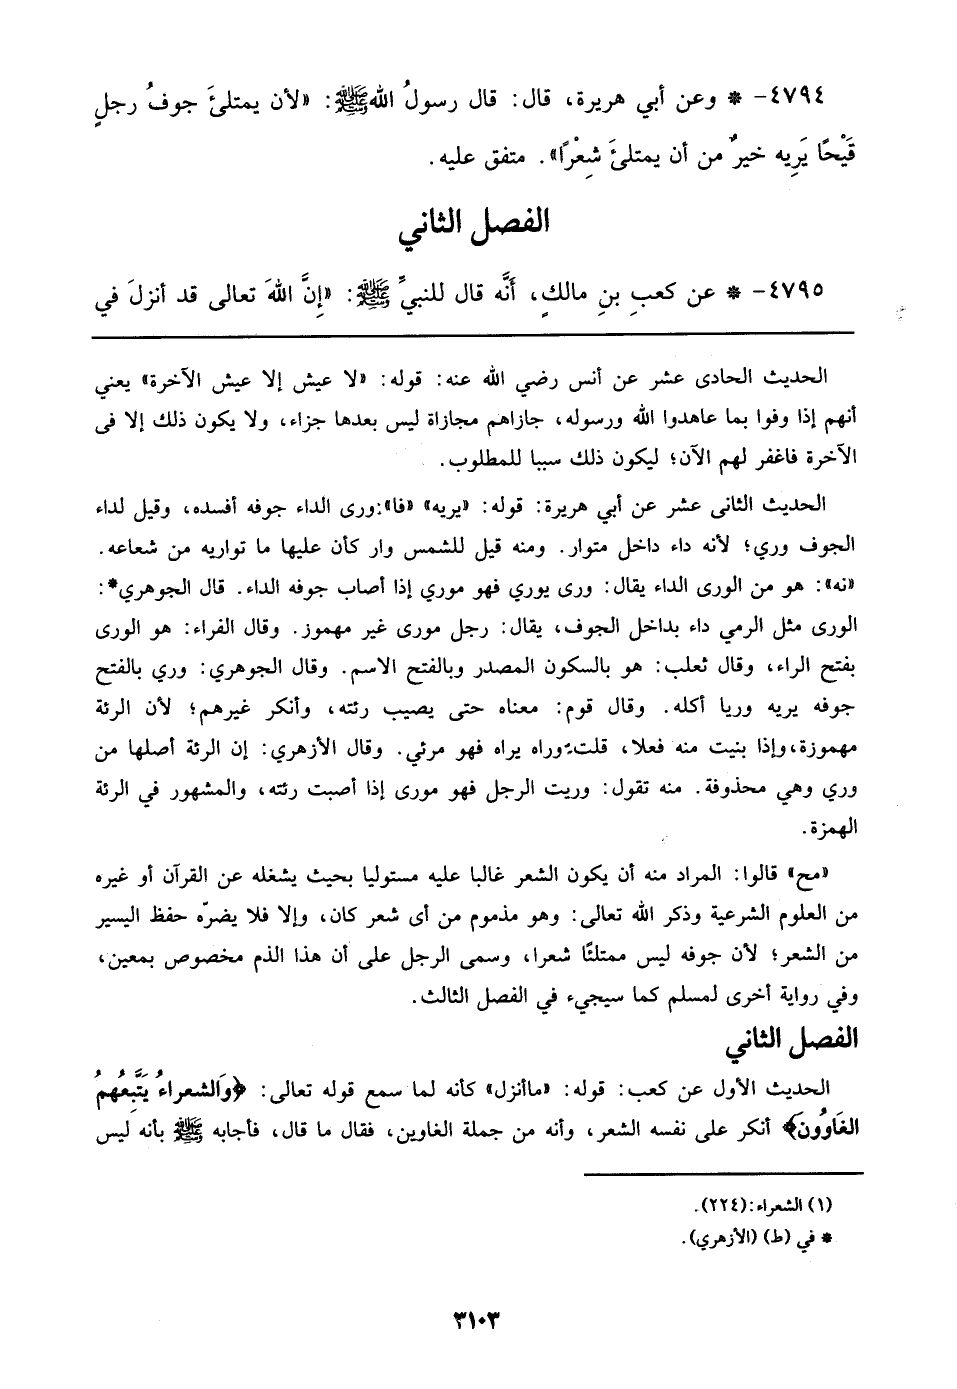 ٤٧٩٤- * وعن أبي هريرة، قال: قال رسولُ اللهﷺ: «لأن يمتلئَ جوفُ رجلٍ
قَيْحًا يَرِيه خيرٌ من أن يمتلئَ شِعْرًا». متفق عليه.
الفصل الثاني
٤٧٩٥- * عن كعبِ بنِ مالكٍ، أَنَّه قال للنبيِّ ﷺ: «إِنَّ اللهَ تعالى قد أنزلَ في
الحديث الحادى عشر عن أنس رضي الله عنه: قوله: «لا عيش إلا عيش الآخرة» يعني
أنهم إذا وفوا بما عاهدوا الله ورسوله، جازاهم مجازاة ليس بعدها جزاء، ولا يكون ذلك إلا فى
الآخرة فاغفر لهم الآن؛ ليكون ذلك سببا للمطلوب.
الحديث الثانى عشر عن أبي هريرة: قوله: «يريه» «فا»:ورى الداء جوفه أفسده، وقيل لداء
الجوف وري؛ لأنه داء داخل متوار. ومنه قيل للشمس وار كأن عليها ما تواريه من شعاعه.
«نه»: هو من الورى الداء يقال: ورى يوري فهو موري إذا أصاب جوفه الداء. قال الجوهري*:
الورى مثل الرمي داء بداخل الجوف، يقال: رجل مورى غير مهموز. وقال الفراء: هو الورى
بفتح الراء، وقال ثعلب: هو بالسكون المصدر وبالفتح الاسم. وقال الجوهري: وري بالفتح
جوفه يريه وريا أكله. وقال قوم: معناه حتى يصيب رئته، وأنكر غيرهم؛ لأن الرئة
مهموزة،وإذا بنيت منه فعلا، قلت:وراه يراه فهو مرئي. وقال الأزهري: إن الرئة أصلها من
وري وهي محذوفة. منه تقول: وريت الرجل فهو مورى إذا أصبت رئته، والمشهور في الرئة
الهمزة.
«مح» قالوا: المراد منه أن يكون الشعر غالبا عليه مستوليا بحيث يشغله عن القرآن أو غيره
من العلوم الشرعية وذكر الله تعالى: وهو مذموم من أى شعر كان، وإلا فلا يضرّه حفظ اليسير
من الشعر؛ لأن جوفه ليس ممتلئًا شعرا، وسمى الرجل على أن هذا الذم مخصوص بمعين،
وفي رواية أخرى لمسلم كما سيجيء في الفصل الثالث.
الفصل الثاني
الحديث الأول عن كعب: قوله: «ماأنزل» كأنه لما سمع قوله تعالى: ﴿وَالشعراءُ يَتَّبِعُهمُ
الغَاوُونَ﴾ أنكر على نفسه الشعر، وأنه من جملة الغاوين، فقال ما قال، فأجابه ﷺ بأنه ليس
(١) الشعراء:(٢٢٤).
* في (ط) (الأزهري).
٣١٠٣